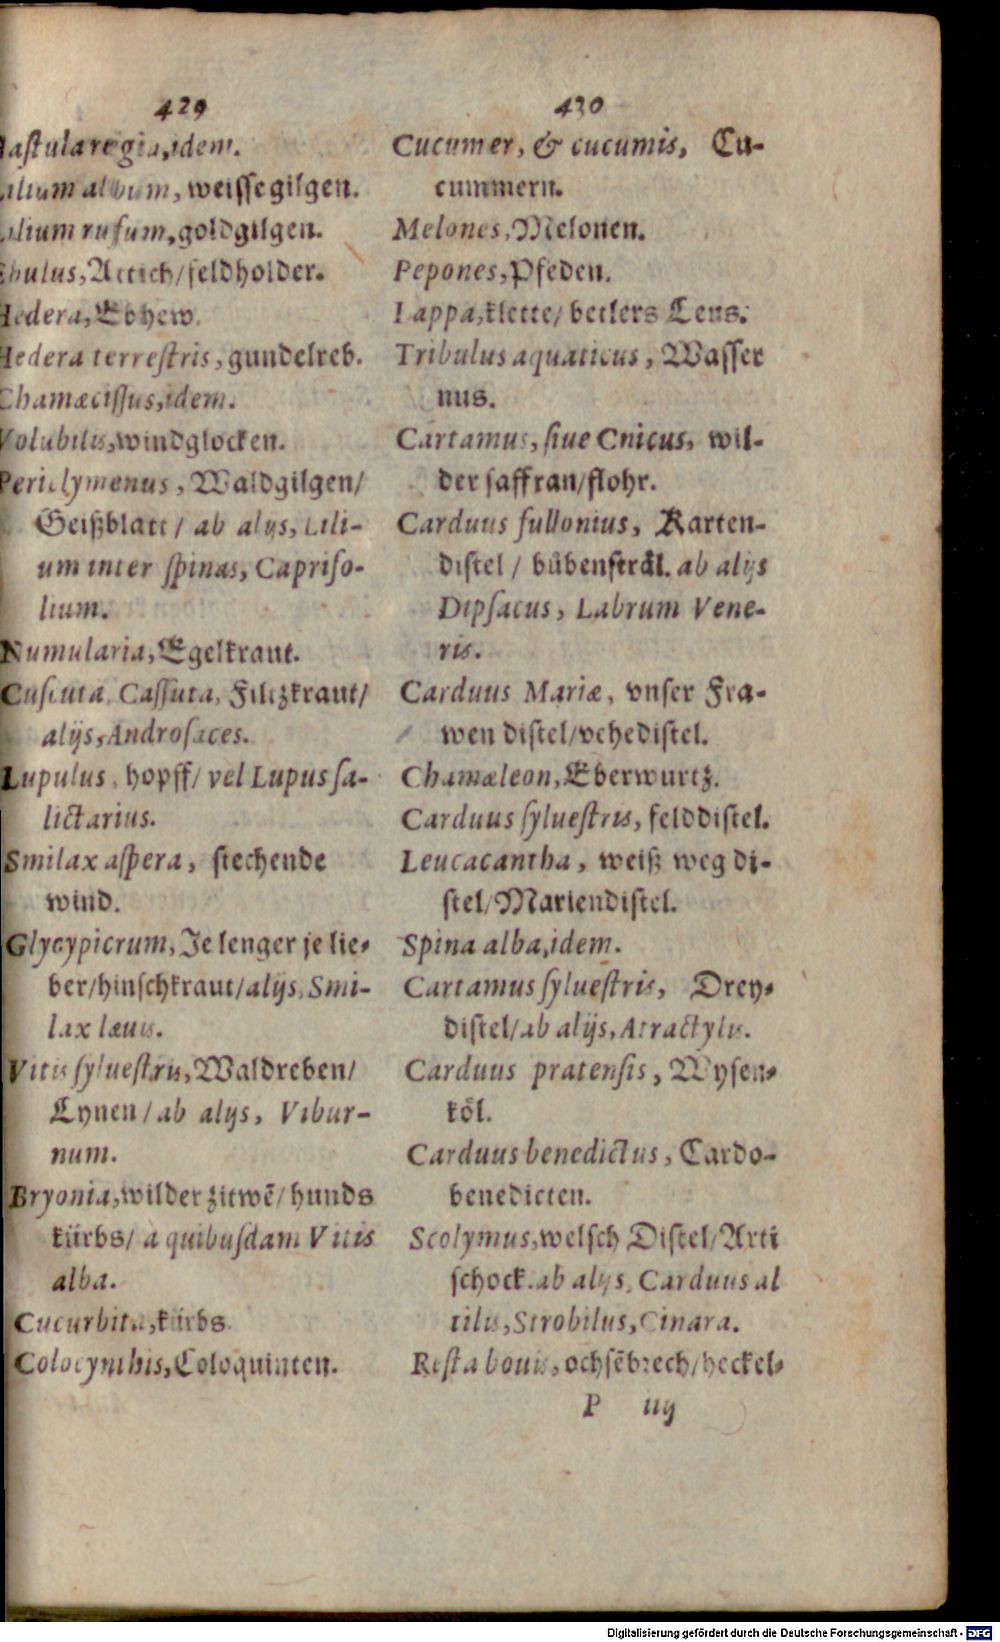 429
Hastula regia, idem.
Lilium album, weisse gilgen.
Lilium rufum, goldgilgen.
Ebulus, Attich/ feldholder.
Hedera, Ebhew.
Hedera terrestris, gundelreb.
Chamæcissus, idem.
Volubilis, windglocken.
Periclymenus, Waldgilgen/
Geißblatt/ ab alijs, Lili-
um inter spinas, Caprifo-
lium.
Numularia, Egelkraut.
Cuscuta, Cassuta, Filtzkraut/
alijs, Androsaces.
Lupulus, hopff/ vel Lupus sa-
lictarius.
Smilax aspera, stechende
wind.
Glycypicrum, Je lenger je lie-
ber/ hinschkraut/ alijs, Smi-
lax læuis.
Vitis syluestris, Waldreben/
Lynen/ ab alijs, Vibur-
num.
Bryonia, wilder zitwē/ hunds
kürbs/ a quibusdam Vitis
alba.
Cucurbita, kürbs.
Colocynthis, Coloquinten.
430
Cucumer, & cucumis, Cu-
cummern.
Melones, Melonen.
Pepones, Pfeden.
Lappa, klette/ betlers Leus.
Tribulus aquaticus, Wasser
nus.
Cartamus, siue Cnicus, wil-
der saffran/ flohr.
Carduus fullonius, Karten-
distel/ bůbensträl. ab alijs
Dipsacus, Labrum Vene-
ris.
Carduus Mariæ, vnser Fra-
wen distel/ vehedistel.
Chamæleon, Eberwurtz.
Carduus syluestris, felddistel.
Leucacantha, weiß weg di-
stel/ Mariendistel.
Spina alba, idem.
Cartamus syluestris, Drey-
distel/ ab alijs, Atractylis.
Carduus pratensis, Wysen-
köl.
Carduus benedictus, Cardo-
benedicten.
Scolymus, welsch Distel/ Arti
schock. ab alijs, Carduus al
tilis, Strobilus, Cinara.
Resta bouis, ochsēbrech/ heckel-
P iiij
Digitalisierung gefördert durch die Deutsche Forschungsgemeinschaft - DFG